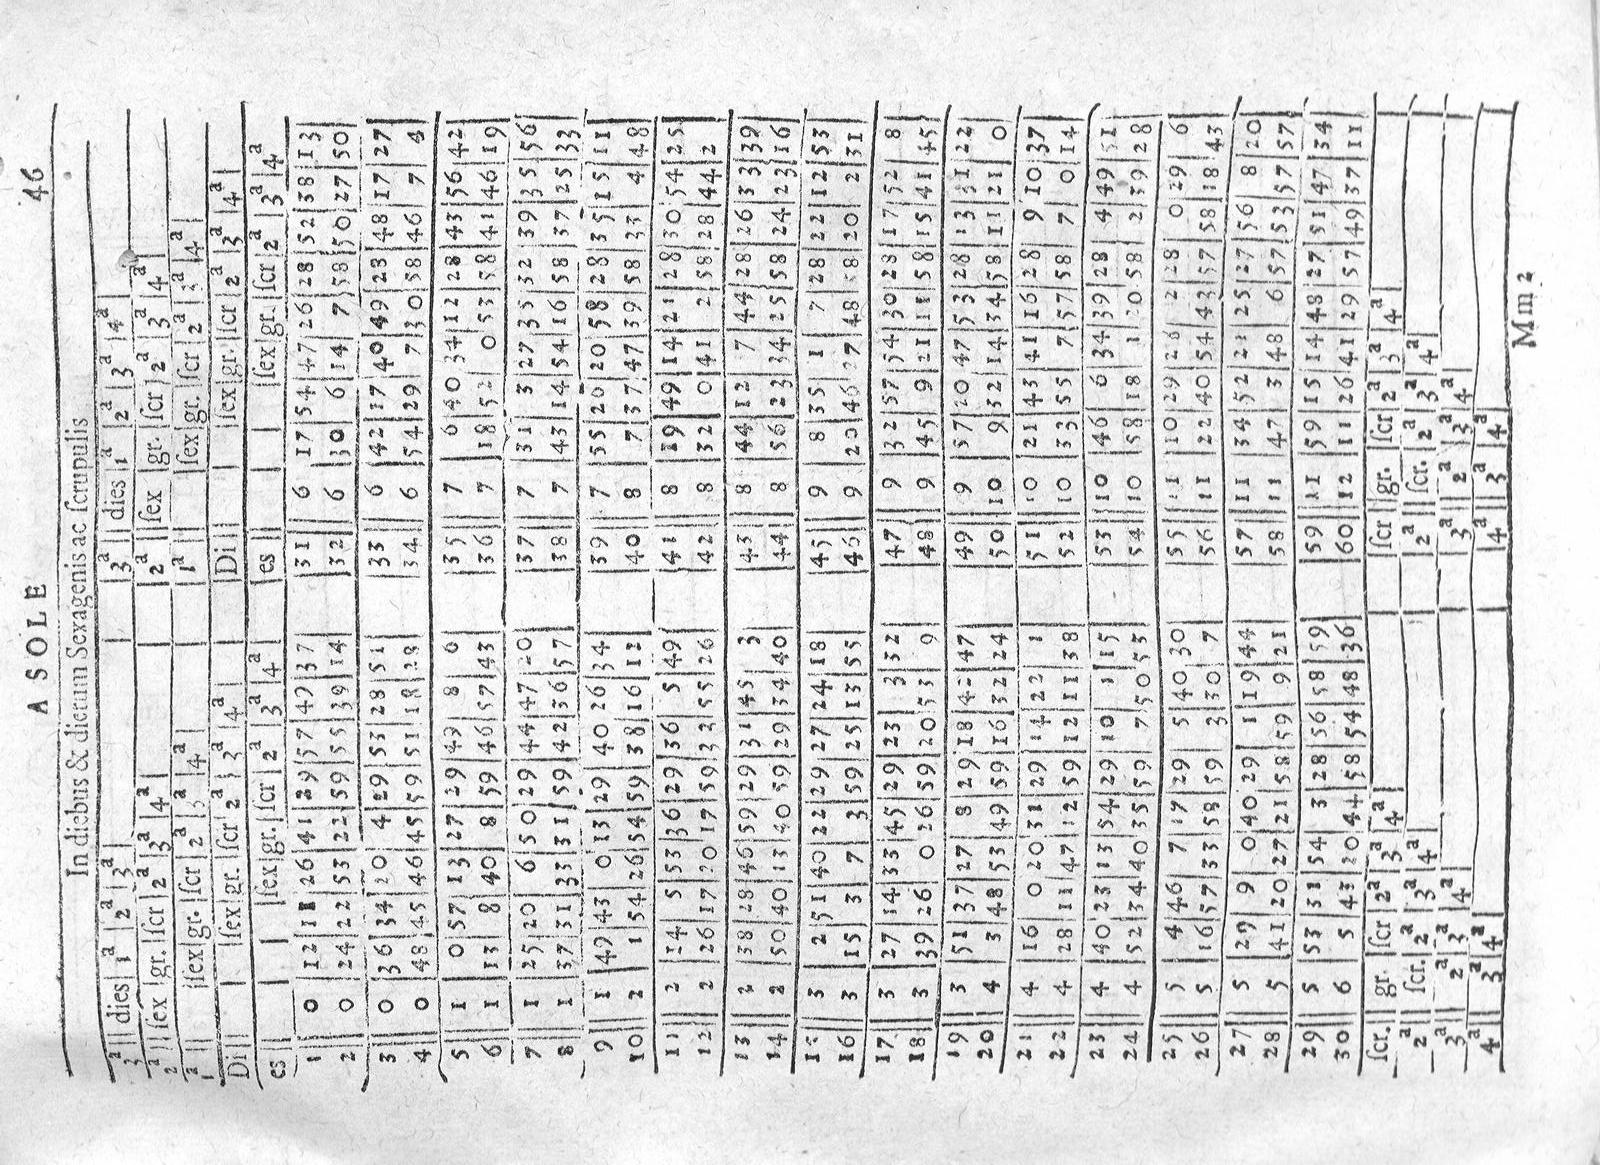 A SOLE 46
In diebus & dierum Sexagenis ac ſcrupulis
3ª dies 1ª 2ª 3ª 3ª dies 1ª 2ª 3ª 4ª
2ª ſex gr. ſcr 2ª 3ª 4ª 2ª ſex gr. ſcr 2ª 3ª 4ª
1ª ſex gr. ſcr 2ª 3ª 4ª 1ª ſex gr. ſcr 2ª 3ª 4ª
Di ſex gr. ſcr 2ª 3ª 4ª Di ſex gr. ſcr 2ª 3ª 4ª
es ſex gr. ſcr 2ª 3ª 4ª es ſex gr. ſcr 2ª 3ª 4ª
1 0 12 11 26 41 29 57 49 37 31 6 17 54 47 26 28 52 38 13
2 0 24 22 53 22 59 55 39 14 32 6 30 6 14 7 58 50 27 50
3 0 36 34 20 4 29 53 28 51 33 6 42 17 40 49 28 48 17 27
4 0 48 45 46 45 59 51 18 28 34 6 54 29 7 30 58 46 7 4
5 1 0 57 13 27 29 49 8 6 35 7 6 40 34 12 28 43 56 42
6 1 13 8 40 8 59 46 57 43 36 7 18 52 0 53 58 41 46 19
7 1 25 20 6 50 29 44 47 20 37 7 31 3 27 35 32 39 35 56
8 1 37 31 33 31 59 42 36 57 38 7 43 14 54 16 58 37 25 33
9 1 49 43 0 13 29 40 26 34 39 7 55 20 20 58 28 35 15 11
10 2 1 54 26 54 59 38 16 12 40 8 7 37 47 39 58 33 4 48
11 2 14 5 53 36 29 36 5 49 41 8 19 49 14 21 28 30 54 25
12 2 26 17 20 17 59 33 55 26 42 8 32 0 41 2 58 28 44 2
13 2 38 28 46 59 29 31 45 3 43 8 44 12 7 44 28 26 33 39
14 2 50 40 13 40 59 29 34 40 44 8 56 23 34 25 58 24 23 16
15 3 2 51 40 22 29 27 24 18 45 9 8 35 1 7 28 22 12 53
16 3 15 3 7 3 59 25 13 55 46 9 20 46 27 48 58 20 2 31
17 3 27 14 33 45 29 23 3 32 47 9 32 57 54 30 28 17 52 8
18 3 39 26 0 26 59 20 53 9 48 9 45 9 21 11 58 15 41 45
19 3 51 37 27 8 29 18 42 47 49 9 57 20 47 53 28 13 31 22
20 4 3 48 53 49 59 16 32 24 50 10 9 32 14 34 58 11 21 0
21 4 16 0 20 31 29 14 22 1 51 10 21 43 41 16 28 9 10 37
22 4 28 11 47 12 59 12 11 38 52 10 33 55 7 57 58 7 0 14
23 4 40 23 13 54 29 10 1 15 53 10 46 6 34 39 28 4 49 51
24 4 52 34 40 35 59 7 50 53 54 10 58 18 1 20 58 2 39 28
25 5 4 46 7 17 29 5 40 30 55 11 10 29 28 2 28 0 29 6
26 5 16 57 33 58 59 3 30 7 56 11 22 40 54 43 57 58 18 43
27 5 29 9 0 40 29 1 19 44 57 11 34 52 21 25 27 56 8 20
28 5 41 20 27 21 58 59 9 21 58 11 47 3 48 6 57 53 57 57
29 5 53 31 54 3 28 56 58 59 59 11 59 15 14 48 27 51 47 34
30 6 5 43 20 44 58 54 48 36 60 12 11 26 41 29 57 49 37 11
ſcr. gr. ſcr 2ª 3ª 4ª ſcr gr. ſcr 2ª 3ª 4ª
2ª ſcr. 2ª 3ª 4ª 2ª ſcr. 2ª 3ª 4ª
3ª 2ª 3ª 4ª 3ª 2ª 3ª 4ª
4ª 3ª 4ª 4ª 3ª 4ª
Mm 2